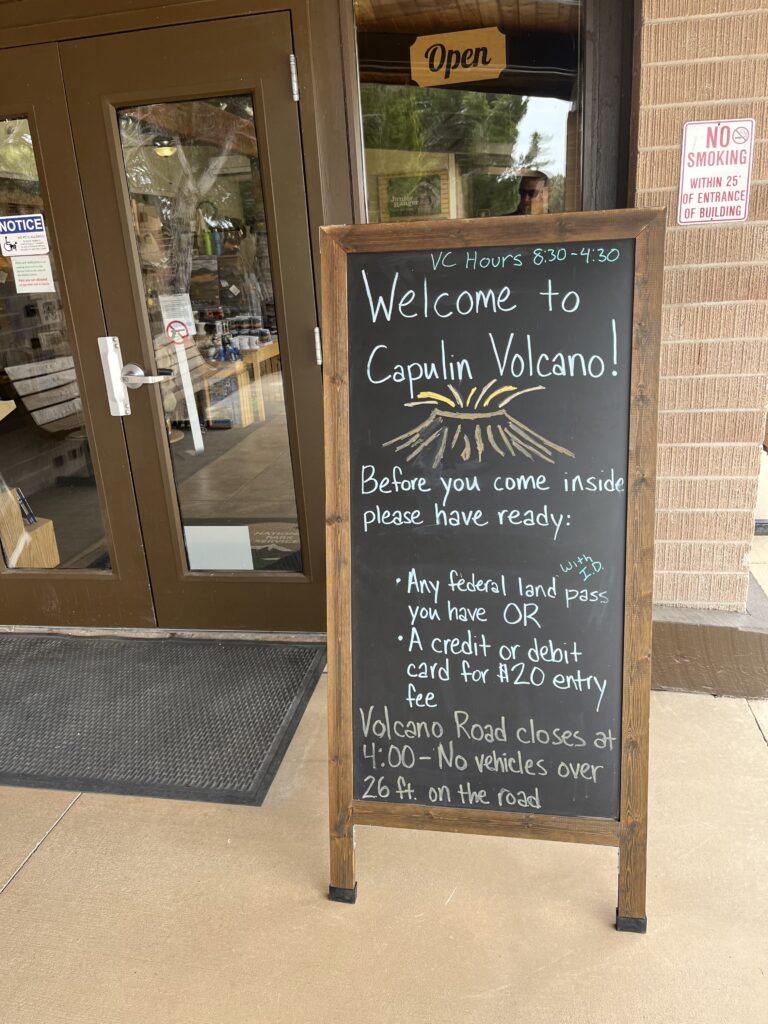 Open
NO
SMOKING
WITHIN 25'
OF ENTRANCE
OF BUILDING
Junior
Ranger
NOTICE
VC Hours 8:30-4:30
Welcome to
Capulin Volcano!
Before you come inside
please have ready:
with
I.D.
• Any federal land pass
you have OR
• A credit or debit
card for $20 entry
fee
Volcano Road closes at
4:00 - No vehicles over
26 ft. on the road
NATIONAL
PARK
SERVICE